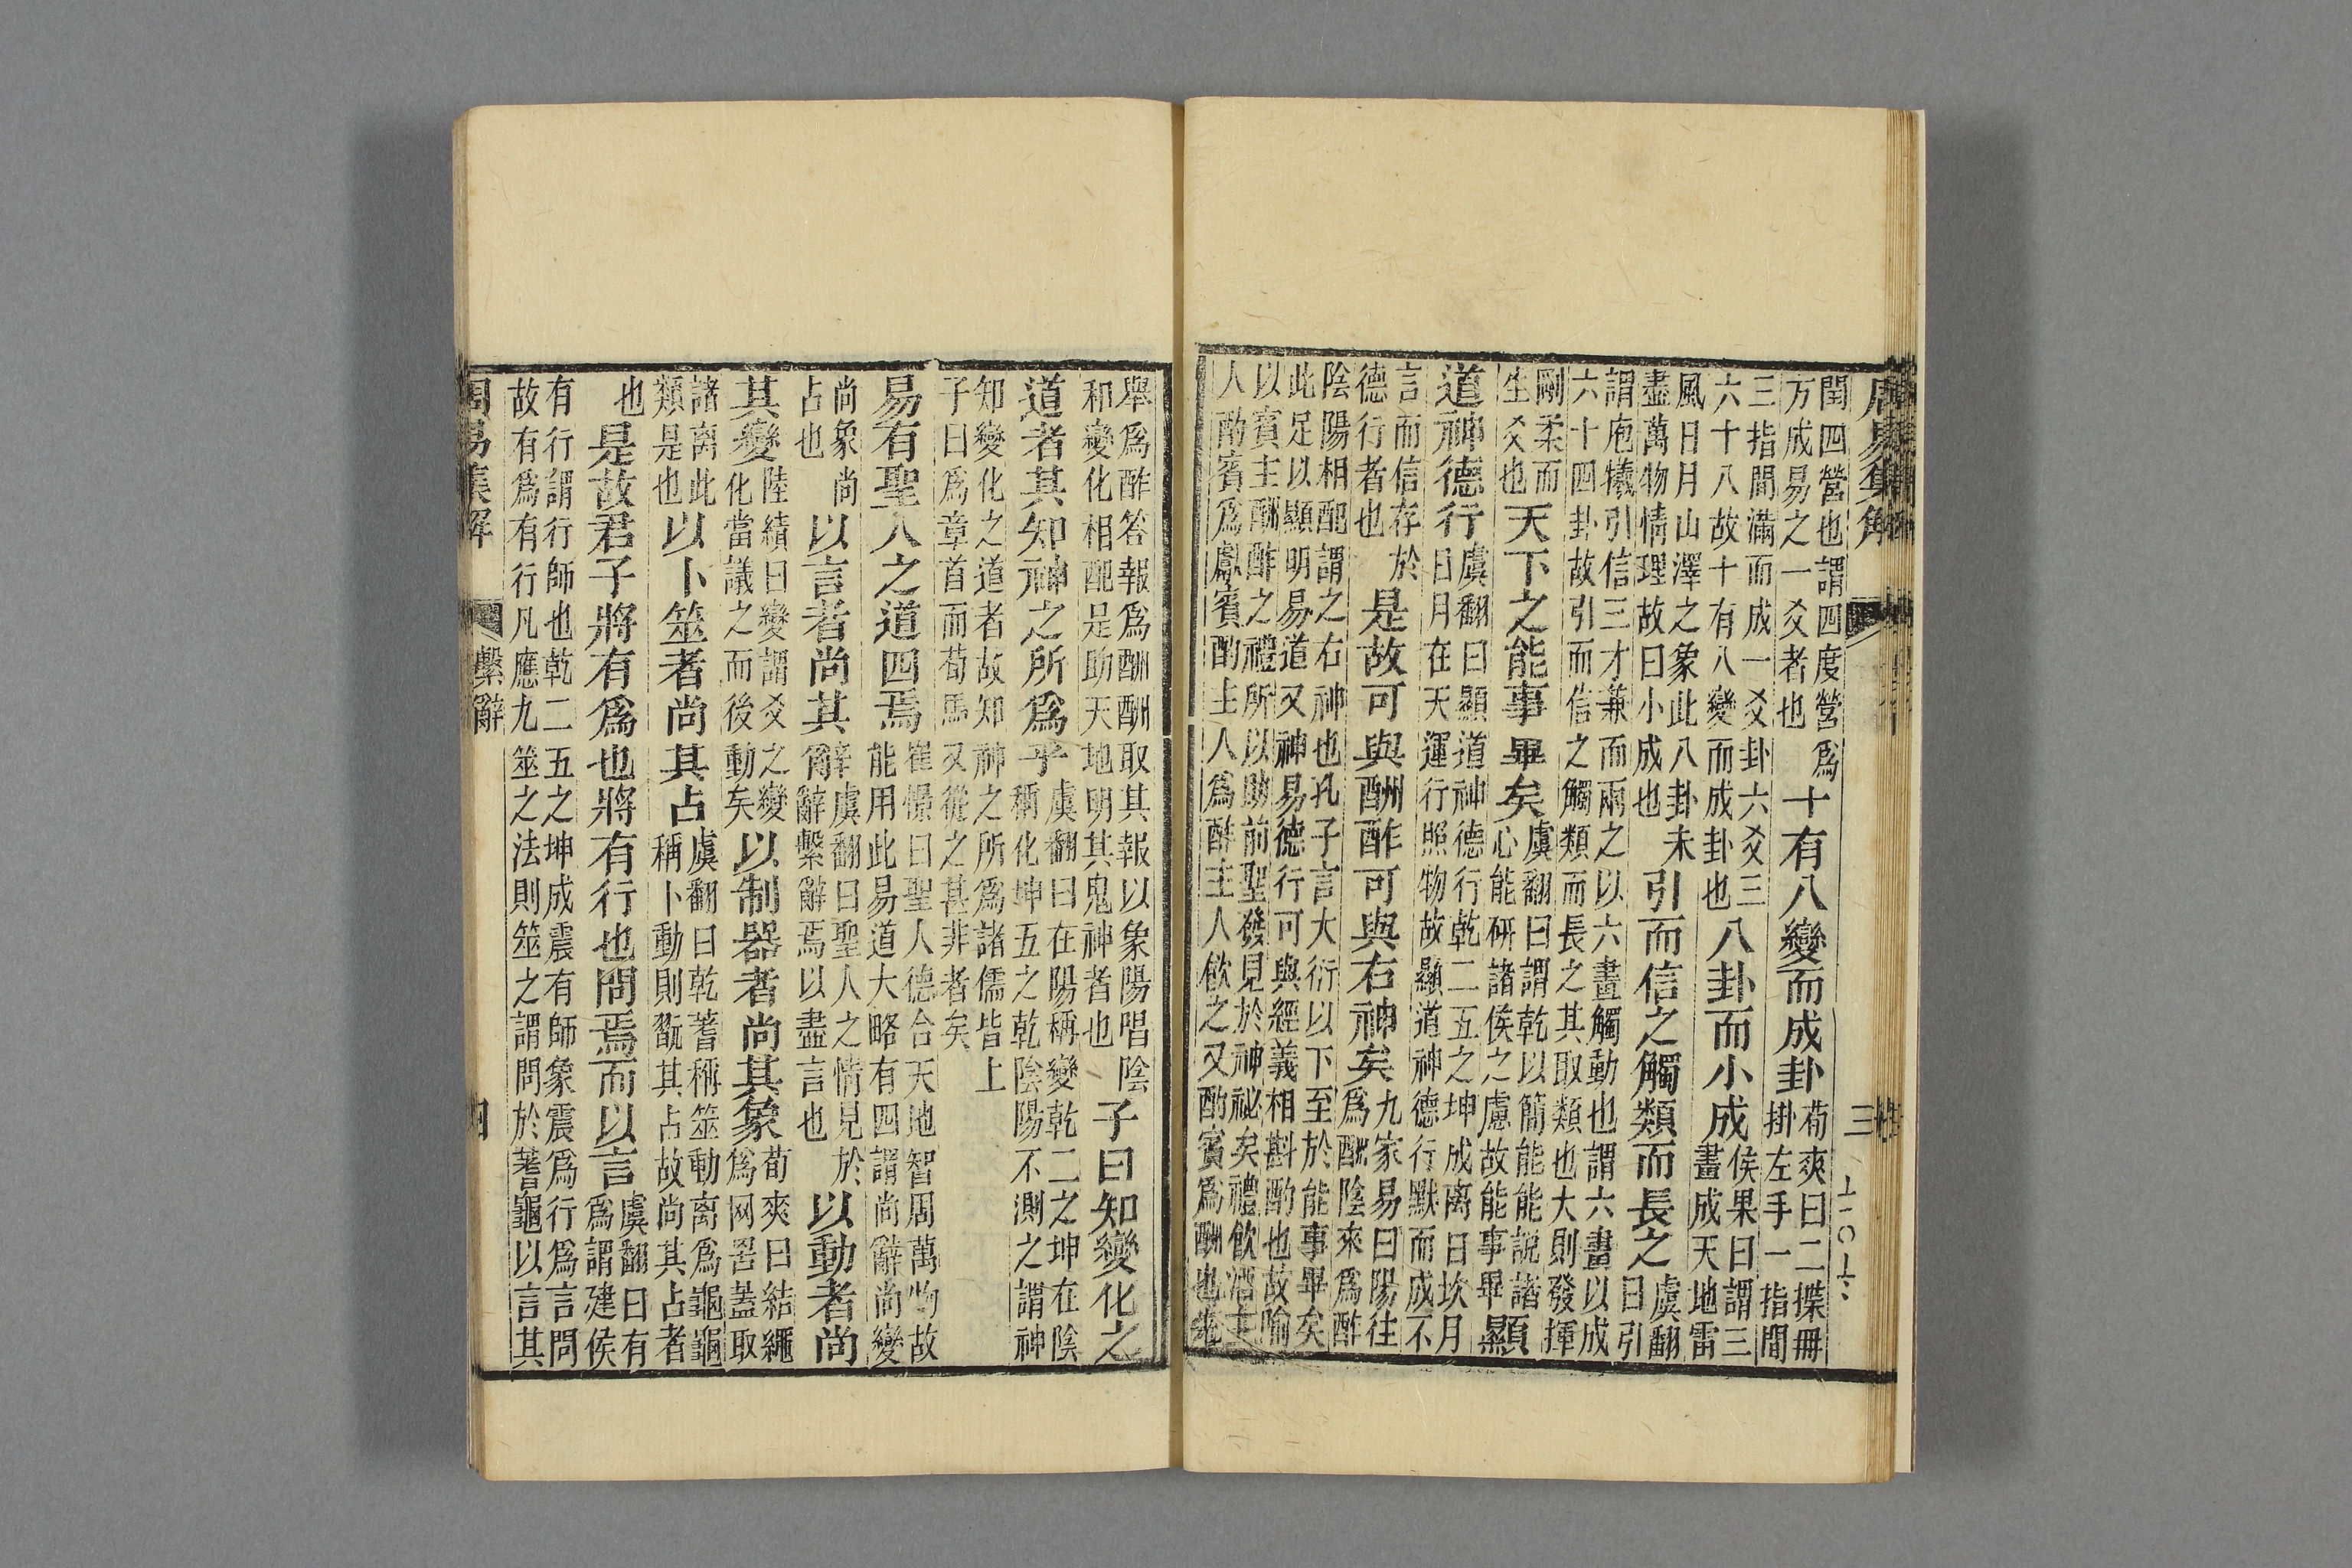 周易集解 三
閏四營也謂四度營爲万成易之一爻者也十有八變而成卦荀爽曰二揲冊掛左手一指間
三指間滿而成一爻卦六爻三六十八故十有八變而成卦也八卦而小成侯果曰謂三畫成天地雷
風日月山澤之象此八卦未盡萬物情理故曰小成也引而信之觸類而長之虞翻曰引
謂庖犧引信三才兼而兩之以六畫觸動也謂六畫以成六十四卦故引而信之觸類而長之其取類也大則發揮
剛柔而生爻也天下之能事畢矣虞翻曰謂乾以簡能能說諸心能研諸侯之慮故能事畢顯
道神德行虞翻曰顯道神德行乾二五之坤成离日坎月日月在天運行照物故顯道神德行默而成不
言而信存於德行者也是故可與酬酢可與右神矣九家易曰陽往爲酬陰來爲酢
陰陽相配謂之右神也孔子言大衍以下至於能事畢矣此足以顯明易道又神易德行可與經義相斟酌也故喻
以賓主酬酢之禮所以助前聖發見於神祕矣禮飲酒主人酌賓爲獻賓酌主人爲酢主人飲之又酌賓爲酬也先
舉爲酢答報爲酬酬取其報以象陽唱陰和變化相配是助天地明其鬼神者也子曰知變化之
道者其知神之所爲乎虞翻曰在陽稱變乾二之坤在陰稱化坤五之乾陰陽不測之謂神
知變化之道者故知神之所爲諸儒皆上子曰爲章首而荀馬又從之甚非者矣
易有聖人之道四焉崔憬曰聖人德合天地智周萬物故能用此易道大略有四謂尚辭尚變
尚象尚占也以言者尚其辭虞翻曰聖人之情見於辭繫辭焉以盡言也以動者尚
其變陸績曰變謂爻之變化當議之而後動矣以制器者尚其象荀爽曰結繩爲网罟蓋取
諸离此類是也以卜筮者尚其占虞翻曰乾蓍稱筮動离爲龜龜稱卜動則翫其占故尚其占者
也是故君子將有爲也將有行也問焉而以言虞翻曰有爲謂建侯
有行謂行師也乾二五之坤成震有師象震爲行爲言問故有爲有行凡應九筮之法則筮之謂問於蓍龜以言其
周易集解 繫辭 四